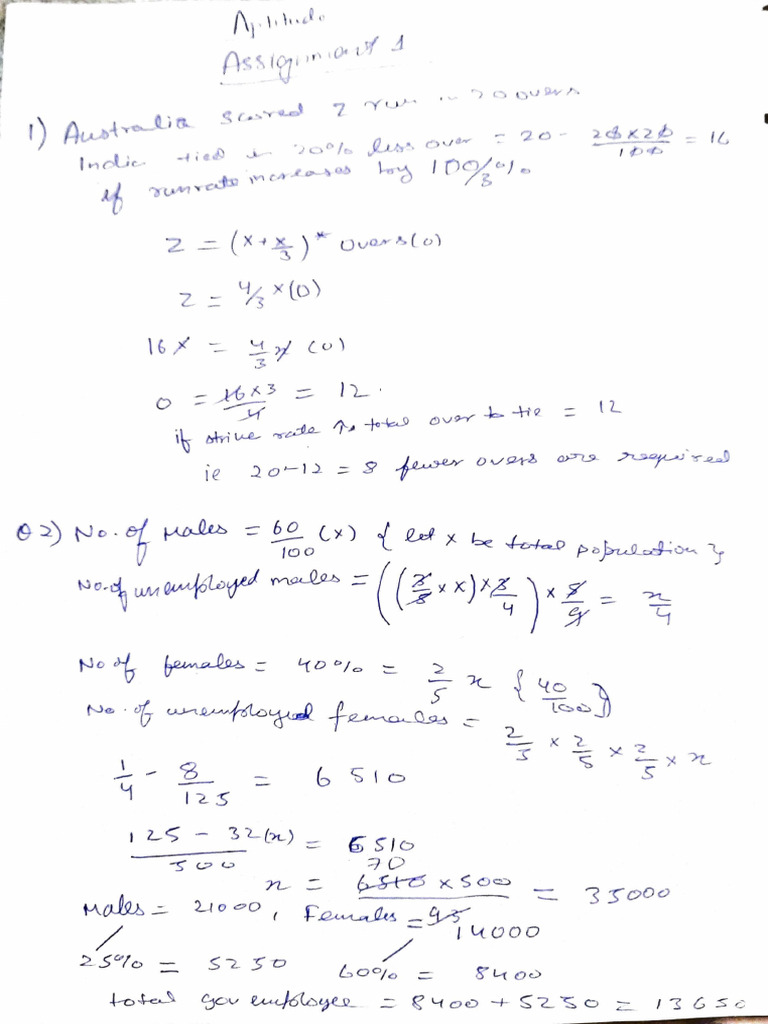 Aptitude
Assignment 1
1) Australia scored Z run in 20 overs
India tied in 20% less over = 20 - 20×20/100 = 16
if runrate increases by 100/3 %
Z = (x + x/3) * overs(O)
Z = 4/3 × (O)
16x = 4/3 x (O)
O = 16×3/4 = 12
if strike rate ↑ total over to tie = 12
ie 20-12 = 8 fewer overs are required
Q2) No. of Males = 60/100 (x) { let x be total population }
No. of unemployed males = ((3/5 × x) × 3/4) × 5/9 = x/4
No of females = 40% = 2/5 x { 40/100 }
No. of unemployed females = 2/5 × 2/5 × 2/5 × x
1/4 - 8/125 = 6510
125 - 32(x)/500 = 6510
x = 6510 × 500/93 = 35000
70
Males = 21000, Females = 14000
25% = 5250 60% = 8400
total gov employee = 8400 + 5250 = 13650